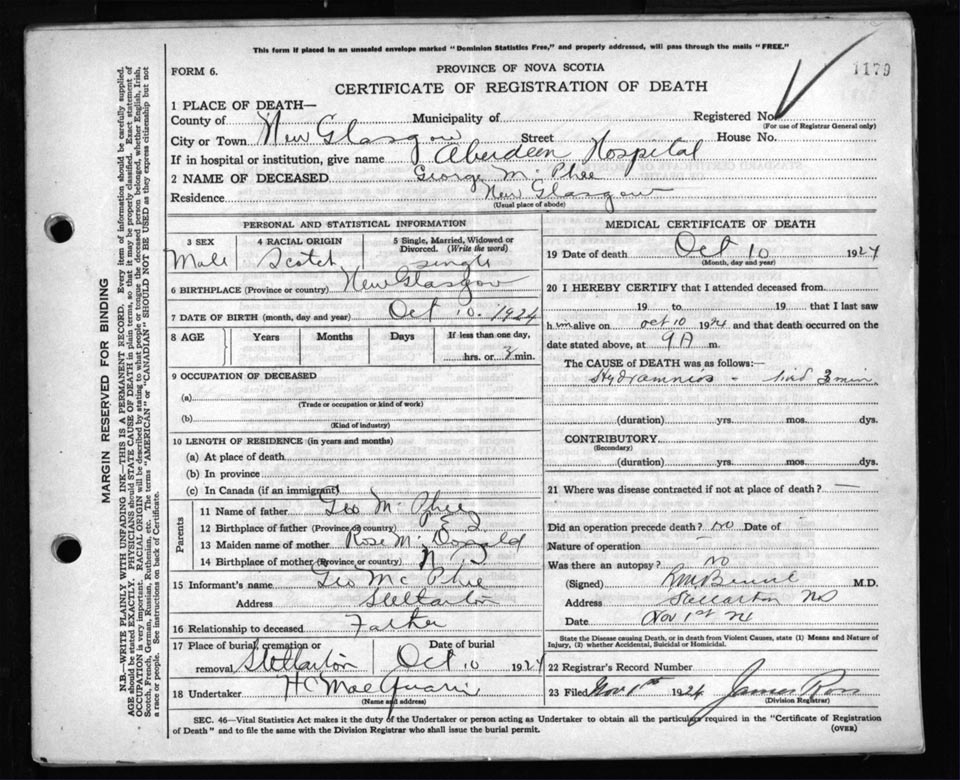 This form if placed in an unsealed envelope marked "Dominion Statistics Free," and properly addressed, will pass through the mails "FREE."
FORM 6.
PROVINCE OF NOVA SCOTIA
1179
CERTIFICATE OF REGISTRATION OF DEATH
1 PLACE OF DEATH—
County of Municipality of Registered No.
(For use of Registrar General only)
City or Town New Glasgow Street House No.
If in hospital or institution, give name Aberdeen Hospital
2 NAME OF DECEASED George McPhee
Residence New Glasgow
(Usual place of abode)
PERSONAL AND STATISTICAL INFORMATION
3 SEX Male
4 RACIAL ORIGIN Scotch
5 Single, Married, Widowed or Divorced. (Write the word) single
6 BIRTHPLACE (Province or country) New Glasgow
7 DATE OF BIRTH (month, day and year) Oct 10. 1924
8 AGE Years Months Days If less than one day,
hrs. or 3 min.
9 OCCUPATION OF DECEASED
(a)
(Trade or occupation or kind of work)
(b)
(Kind of industry)
10 LENGTH OF RESIDENCE (in years and months)
(a) At place of death
(b) In province
(c) In Canada (if an immigrant)
Parents
11 Name of father Geo McPhee
12 Birthplace of father (Province or country)
13 Maiden name of mother Rose McDonald
14 Birthplace of mother (Province or country)
15 Informant's name Geo McPhie
Address Stellarton
16 Relationship to deceased Father
17 Place of burial, cremation or Date of burial
removal Stellarton Oct 10 1924
18 Undertaker H
(Name and address)
MEDICAL CERTIFICATE OF DEATH
19 Date of death Oct 10 1924
(Month, day and year)
20 I HEREBY CERTIFY that I attended deceased from
19 to 19 that I last saw
him alive on oct 10 1924 and that death occurred on the
date stated above, at 9 A m.
The CAUSE of DEATH was as follows:—
Hydramnios - lived 3 min
(duration) yrs. mos. dys.
CONTRIBUTORY
(Secondary)
(duration) yrs. mos. dys.
21 Where was disease contracted if not at place of death?
Did an operation precede death? no Date of
Nature of operation
Was there an autopsy? NO
(Signed) M.D.
Address Stellarton NS
Date Nov 1st 24
State the Disease causing Death, or in death from Violent Causes, state (1) Means and Nature of
Injury, (2) whether Accidental, Suicidal or Homicidal.
22 Registrar's Record Number
23 Filed Nov 1st 1924 James Ross
(Division Registrar)
SEC. 46—Vital Statistics Act makes it the duty of the Undertaker or person acting as Undertaker to obtain all the particulars required in the "Certificate of Registration
of Death" and to file the same with the Division Registrar who shall issue the burial permit.
(OVER)
MARGIN RESERVED FOR BINDING
N.B.—WRITE PLAINLY WITH UNFADING INK—THIS IS A PERMANENT RECORD. Every item of information should be carefully supplied.
AGE should be stated EXACTLY. PHYSICIANS should STATE CAUSE OF DEATH in plain terms, so that it may be properly classified. Exact statement of
OCCUPATION is very important. RACIAL ORIGIN will be described by stating to what people or tongue the deceased person belonged, whether English, Irish,
Scotch, French, German, Russian, Ruthenian, etc. The terms "AMERICAN" or "CANADIAN" SHOULD NOT BE USED as they express citizenship but not
a race or people. See instructions on back of Certificate.